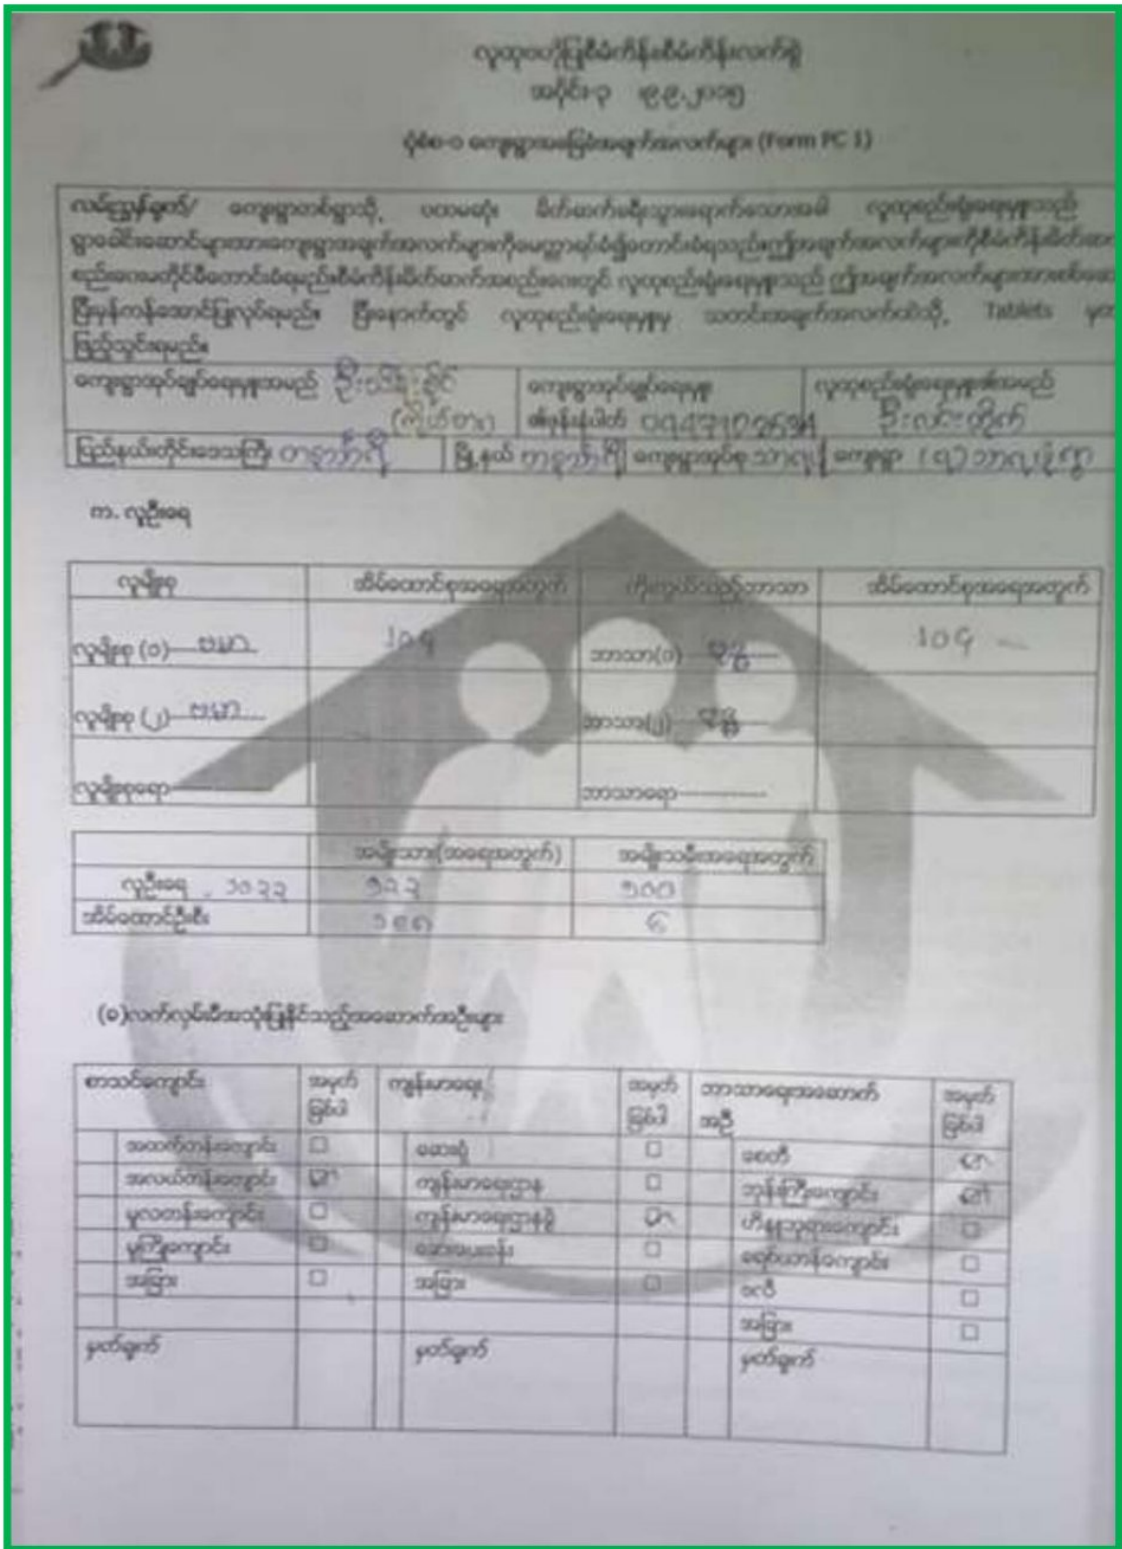 လူထုဗဟိုပြုစီမံကိန်းစီမံကိန်းလက်စွဲ
အပိုင်း-၃ ၊၉.၉.၂၀၁၅
ပုံစံစ-၁ ကျေးရွာအခြေခံအချက်အလက်များ (Form PC 1)
လမ်းညွှန်ချက်/ ကျေးရွာတစ်ရွာသို့ ပထမဆုံး မိတ်ဆက်ခရီးသွားရောက်သောအခါ လူထုစည်းရုံးရေးမှူးသည်
ရွာခေါင်းဆောင်များအားကျေးရွာအချက်အလက်များကိုမေတ္တာရပ်ခံ၍တောင်းခံရသည်။ဤအချက်အလက်များကိုစီမံကိန်းမိတ်ဆက
စည်းဝေးမတိုင်မီတောင်းခံရမည်။စီမံကိန်းမိတ်ဆက်အစည်းဝေးတွင် လူထုစည်းရုံးရေးမှူးသည် ဤအချက်အလက်များအားစစ်ဆေ
ပြီးမှန်ကန်အောင်ပြုလုပ်ရမည်။ ပြီးနောက်တွင် လူထုစည်းရုံးရေးမှူးမှ သတင်းအချက်အလက်ထဲသို့ Tablets မှတ
ဖြည့်သွင်းရမည်။
ကျေးရွာအုပ်ချုပ်ရေးမှူးအမည် ကျေးရွာအုပ်ချုပ်ရေးမှူး လူထုစည်းရုံးရေးမှူး၏အမည်
(ကိုယ်စား) ၏ဖုန်းနံပါတ် ဦးလင်းထိုက်
ပြည်နယ်/တိုင်းဒေသကြီး တနင်္သာရီ မြို့နယ် တနင်္သာရီ ကျေးရွာအုပ်စု ကျေးရွာ
က. လူဦးရေ
လူမျိုးစု အိမ်ထောင်စုအရေအတွက် ကိုးကွယ်သည့်ဘာသာ အိမ်ထောင်စုအရေအတွက်
လူမျိုးစု (၁) ဗမာ ၂၀၄ ဘာသာ(၁) ဗုဒ္ဓ ၂၀၄
လူမျိုးစု (၂) ဗမာ ဘာသာ(၂) ဗုဒ္ဓ
လူမျိုးစုရော ဘာသာရော
အမျိုးသား(အရေအတွက်) အမျိုးသမီးအရေအတွက်
လူဦးရေ ၁၀၃၃ ၅၃၃ ၅၀၀
အိမ်ထောင်ဦးစီး ၆
(ခ)လက်လှမ်းမီအသုံးပြုနိုင်သည့်အဆောက်အဦးများ
စာသင်ကျောင်း အမှတ် ကျန်းမာရေး အမှတ် ဘာသာရေးအဆောက် အမှတ်
ခြစ်ပါ ခြစ်ပါ အဦ ခြစ်ပါ
အထက်တန်းကျောင်း ဆေးရုံ စေတီ
အလယ်တန်းကျောင်း ကျန်းမာရေးဌာန ဘုန်းကြီးကျောင်း
မူလတန်းကျောင်း ကျန်းမာရေးဌာနခွဲ ဟိန္ဒူဘုရားကျောင်း
မူကြိုကျောင်း ဆေးပေးခန်း ခရစ်ယာန်ကျောင်း
အခြား အခြား ဗလီ
အခြား
မှတ်ချက် မှတ်ချက် မှတ်ချက်